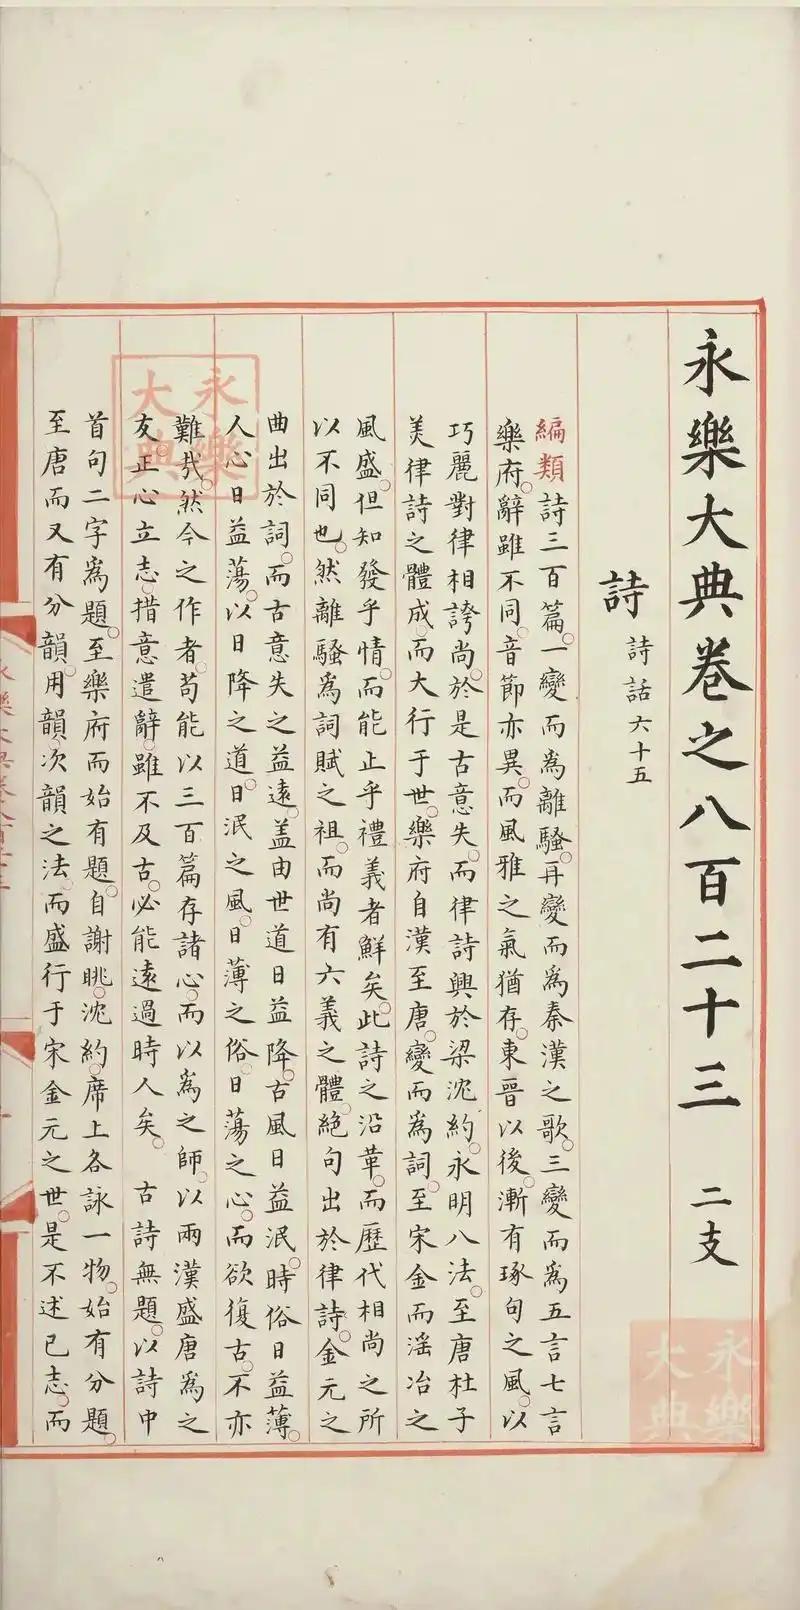 永樂大典卷之八百二十三 二支
詩 詩話六十五
編類詩三百篇。一變而爲離騷。再變而爲秦漢之歌。三變而爲五言七言
樂府。辭雖不同。音節亦異。而風雅之氣猶存。東晉以後。漸有琢句之風。以
巧麗對律相誇尚。於是古意失。而律詩興於梁沈約。永明八法。至唐杜子
美律詩之體成。而大行于世。樂府自漢至唐。變而爲詞。至宋金而滛冶之
風盛。但知發乎情。而能止乎禮義者鮮矣。此詩之沿革。而歷代相尚之所
以不同也。然離騷爲詞賦之祖。而尚有六義之體。絕句出於律詩。金元之
曲出於詞。而古意失之益遠。盖由世道日益降。古風日益泯。時俗日益薄。
人心日益蕩。以日降之道。日泯之風。日薄之俗。日蕩之心。而欲復古。不亦
難哉。然今之作者。苟能以三百篇存諸心。而以爲之師。以兩漢盛唐爲之
友。正心立志。措意遣辭。雖不及古。必能遠過時人矣。 古詩無題。以詩中
首句二字爲題。至樂府而始有題。自謝眺。沈約。席上各詠一物。始有分題。
至唐而又有分韻。用韻次韻之法。而盛行于宋金元之世。是不述已志。而
永樂大典
永樂大典